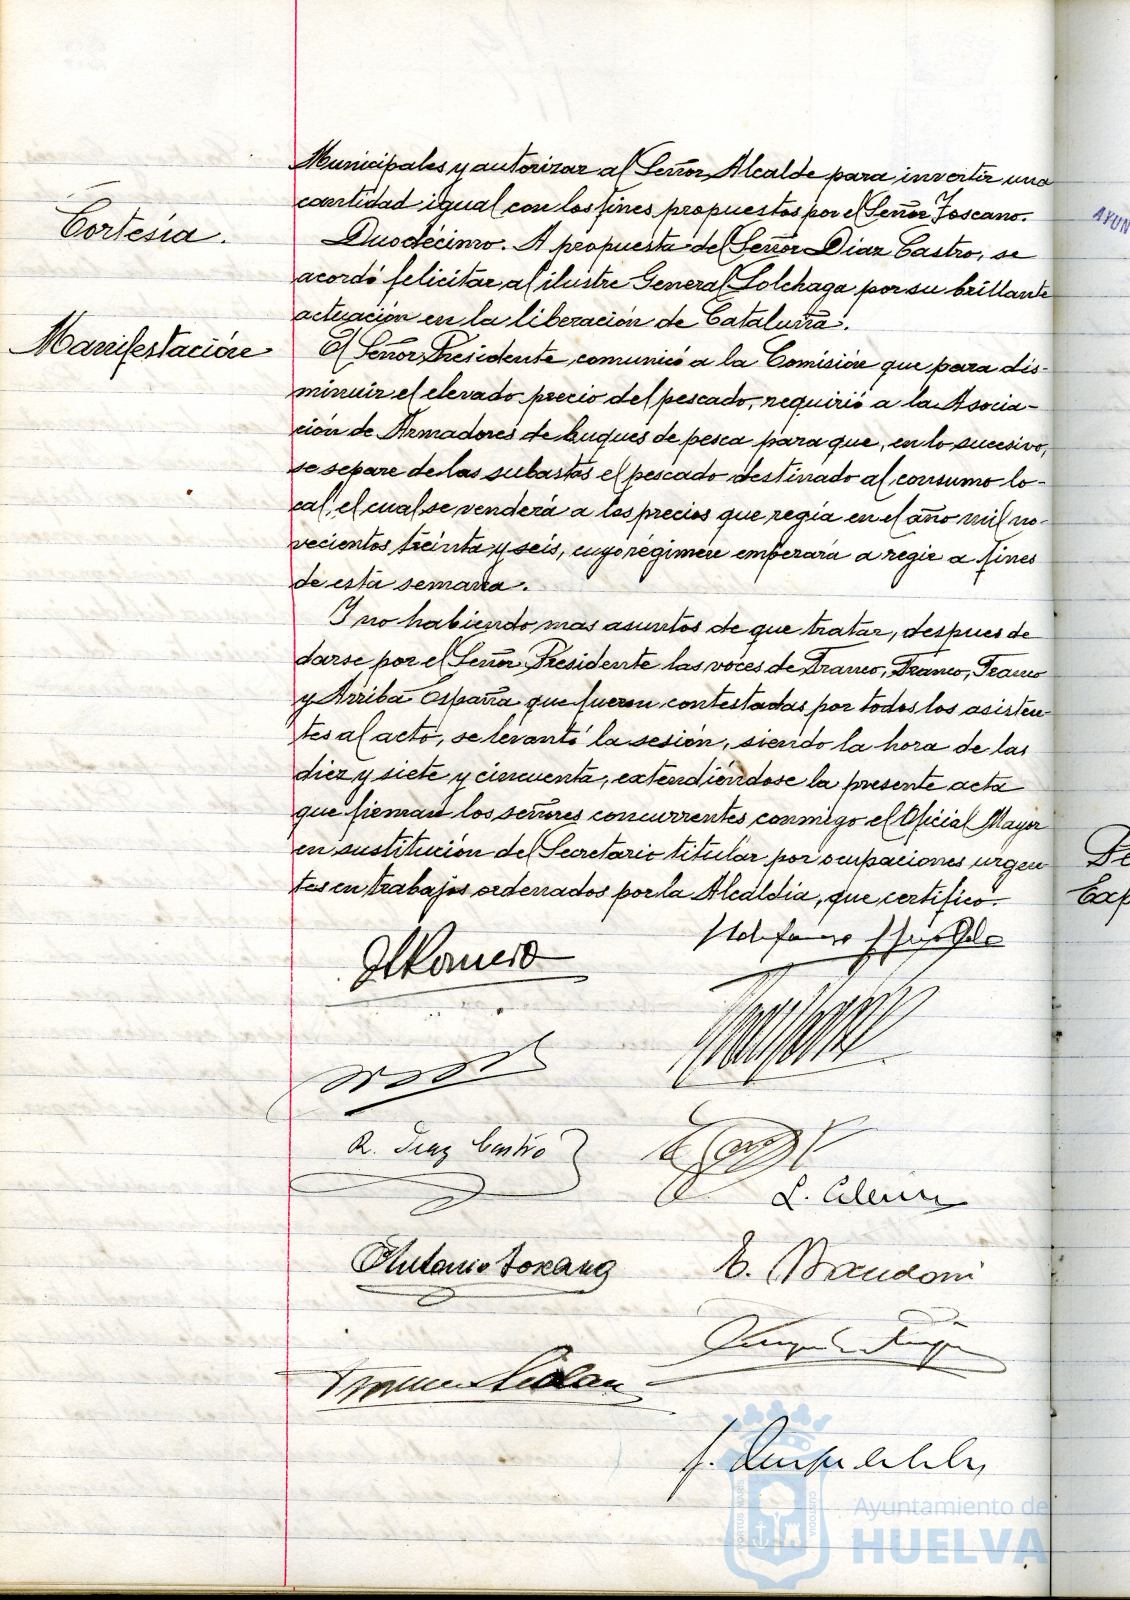 Municipales y autorizar al Señor Alcalde para invertir una
cantidad igual con los fines propuestos por el Señor Toscano.
Cortesía.
Duodécimo. A propuesta del Señor Díaz Castro, se
acordó felicitar al ilustre General Solchaga por su brillante
actuación en la liberación de Cataluña.
Manifestación
El Señor Presidente comunicó a la Comisión que para dis-
minuir el elevado precio del pescado, requirió a la Asocia-
ción de Armadores de buques de pesca para que, en lo sucesivo,
se separe de las subastas el pescado destinado al consumo lo-
cal, el cual se venderá a los precios que regía en el año mil no-
vecientos treinta y seis, cuyo régimen empezará a regir a fines
de esta semana.
Y no habiendo mas asuntos de que tratar, despues de
darse por el Señor Presidente las voces de Franco, Franco, Franco
y Arriba España que fueron contestadas por todos los asisten-
tes al acto, se levantó la sesión, siendo la hora de las
diez y siete y cincuenta, extendiéndose la presente acta
que firman los señores concurrentes conmigo el Oficial Mayor
en sustitución del Secretario titular por ocupaciones urgen
tes en trabajos ordenados por la Alcaldía, que certifico.
Romero
R. Diaz Castro
Antonio Toscano
AYUN
Exp
Ayuntamiento de
HUELVA